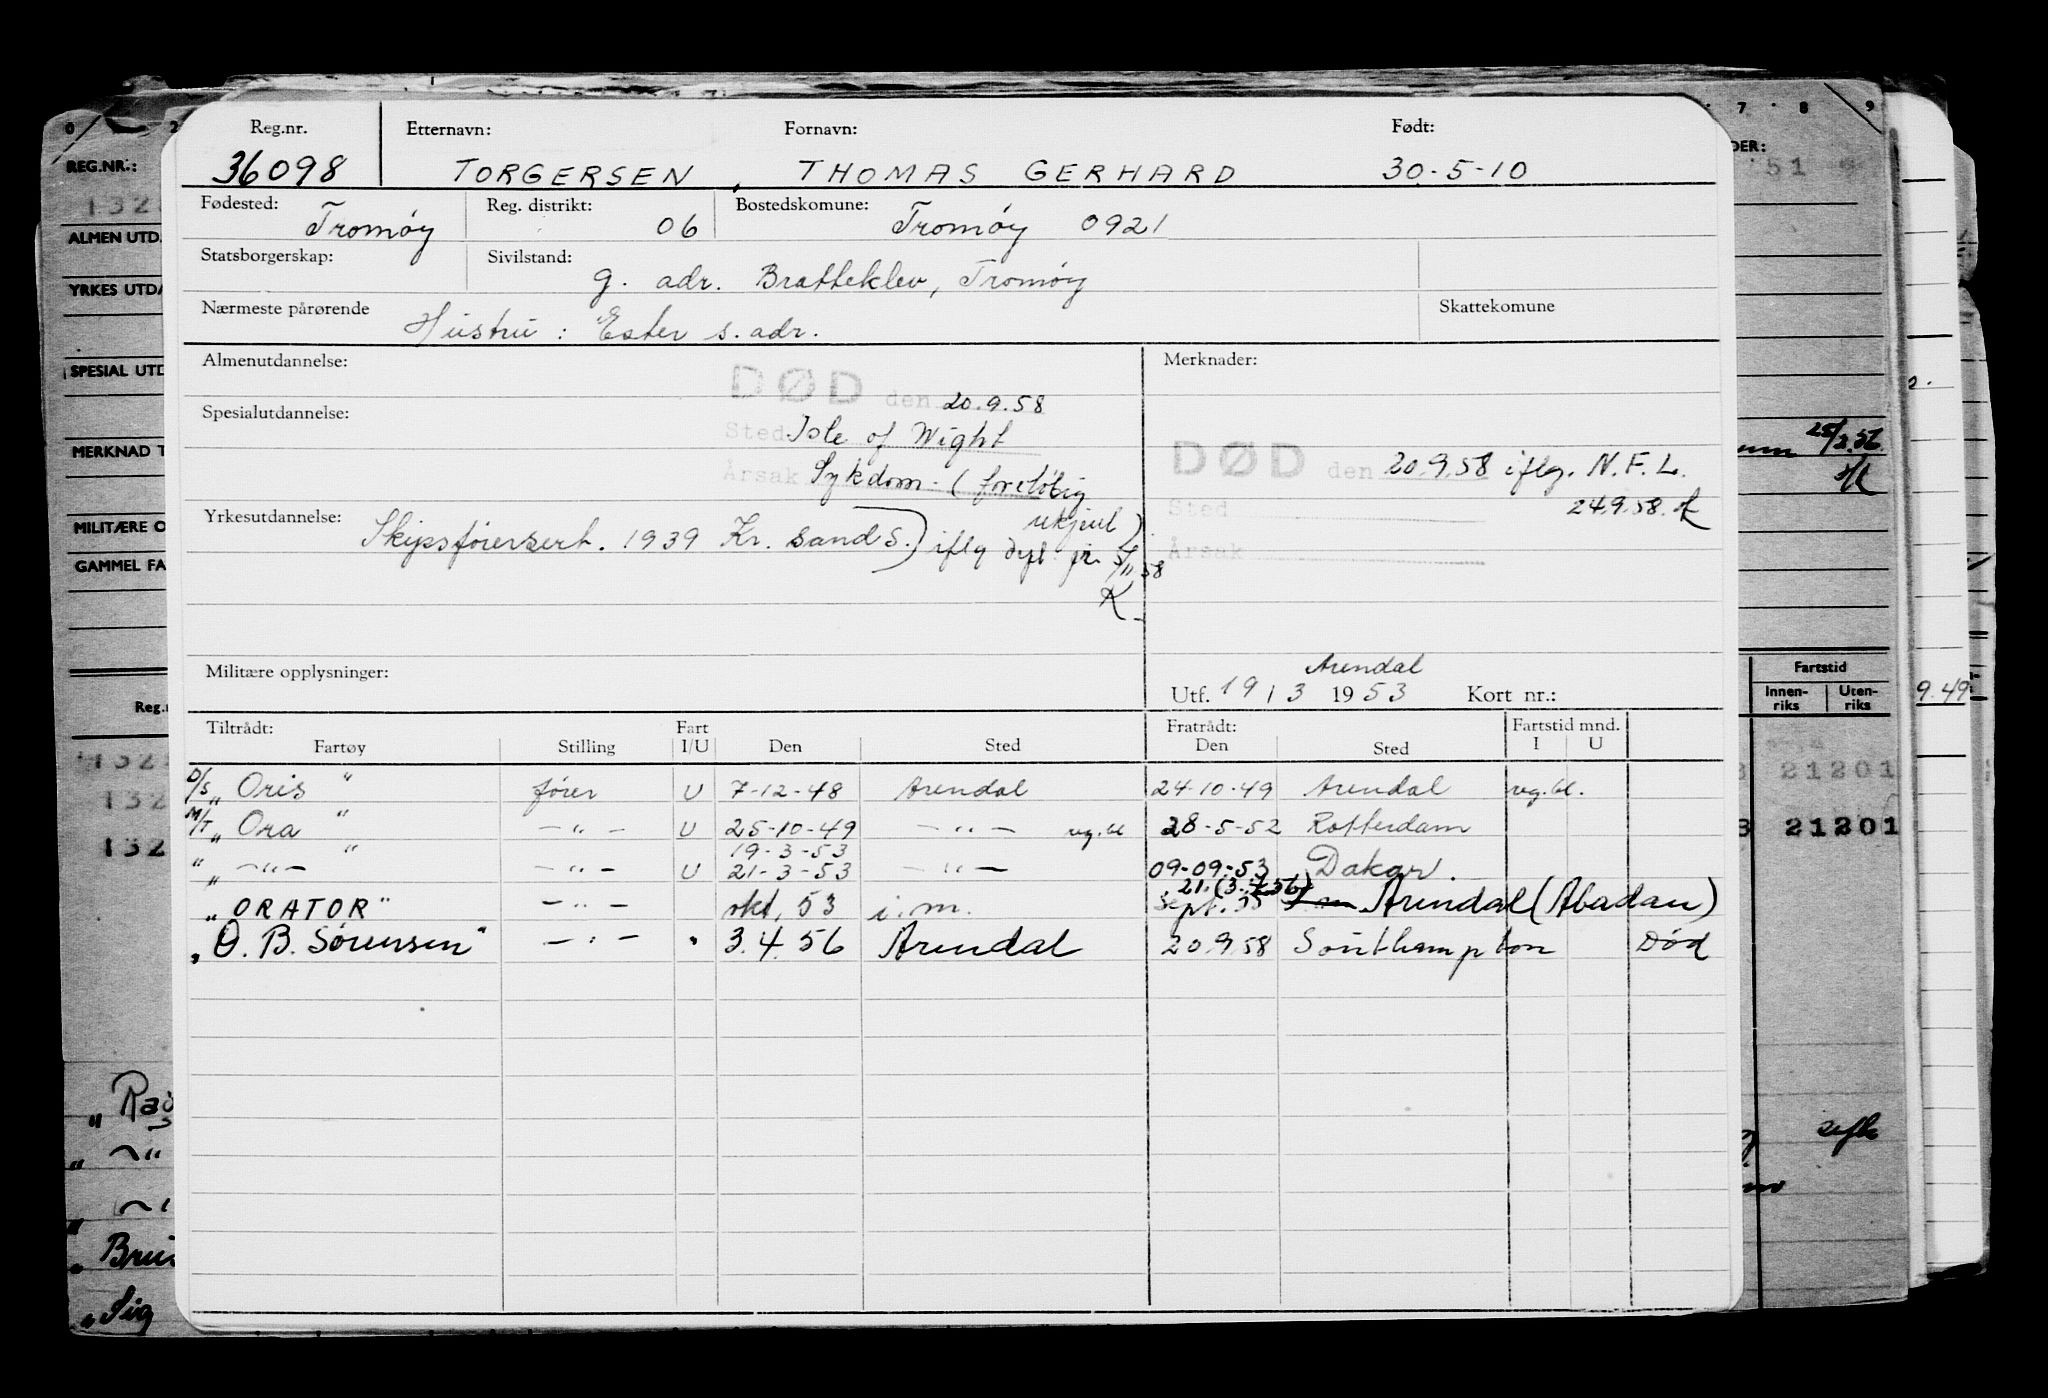 Reg.nr. Etternavn: Fornavn: Født:
36098 TORGERSEN, THOMAS GERHARD 30-5-10
Fødested: Tromøy Reg. distrikt: 06 Bostedskomune: Tromøy 0921
Statsborgerskap: Sivilstand: g. adr. Bratteklev, Tromøy
Nærmeste pårørende Hustru: Ester s. adr. Skattekomune
Almenutdannelse: Merknader:
DØD den 20.9.58
Spesialutdannelse: Sted Isle of Wight
DØD den 20.9.58 iflg. N.F.L.
Årsak Sykdom - (foreløbig
ukjent)
Sted 24.9.58.
Yrkesutdannelse: Skipsførersert. 1939 Kr.sand S.) iflg dypl. pr. 5/11 58
Årsak
K
Militære opplysninger: Arendal
Utf. 19 / 3 1953 Kort nr.:
Tiltrådt: Fart Fratrådt: Fartstid mnd.
Fartøy Stilling I/U Den Sted Den Sted I U
D/S "Oris" fører U 7-12-48 Arendal 24-10-49 Arendal reg.bl.
M/T "Ora" -"- U 25-10-49 -"- reg.bl 28-5-52 Rotterdam
19-3-53
" -"- " -"- U 21-3-53 -"- 09-09-53 Dakar.
"ORATOR" -"- okt, 53 i.m. sept. 55 Arendal (Abadan)
"O. B. Sørensen" -"- " 3.4.56 Arendal 20.9.58 Southampton Død
REG.NR.:
ALMEN UTD.
YRKES UTDA
SPESIAL UTD
MERKNAD T
MILITÆRE O
GAMMEL FA
Reg.
7 8 9
DER:
51
25/2.56
Fartstid
Innen-
riks
Uten-
riks
9.49
21201
21201
132
132
Brui
"Sig